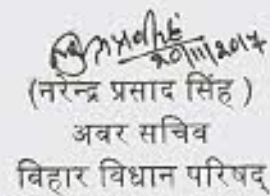 20/11/2017
(नरेन्द्र प्रसाद सिंह )
अवर सचिव
बिहार विधान परिषद